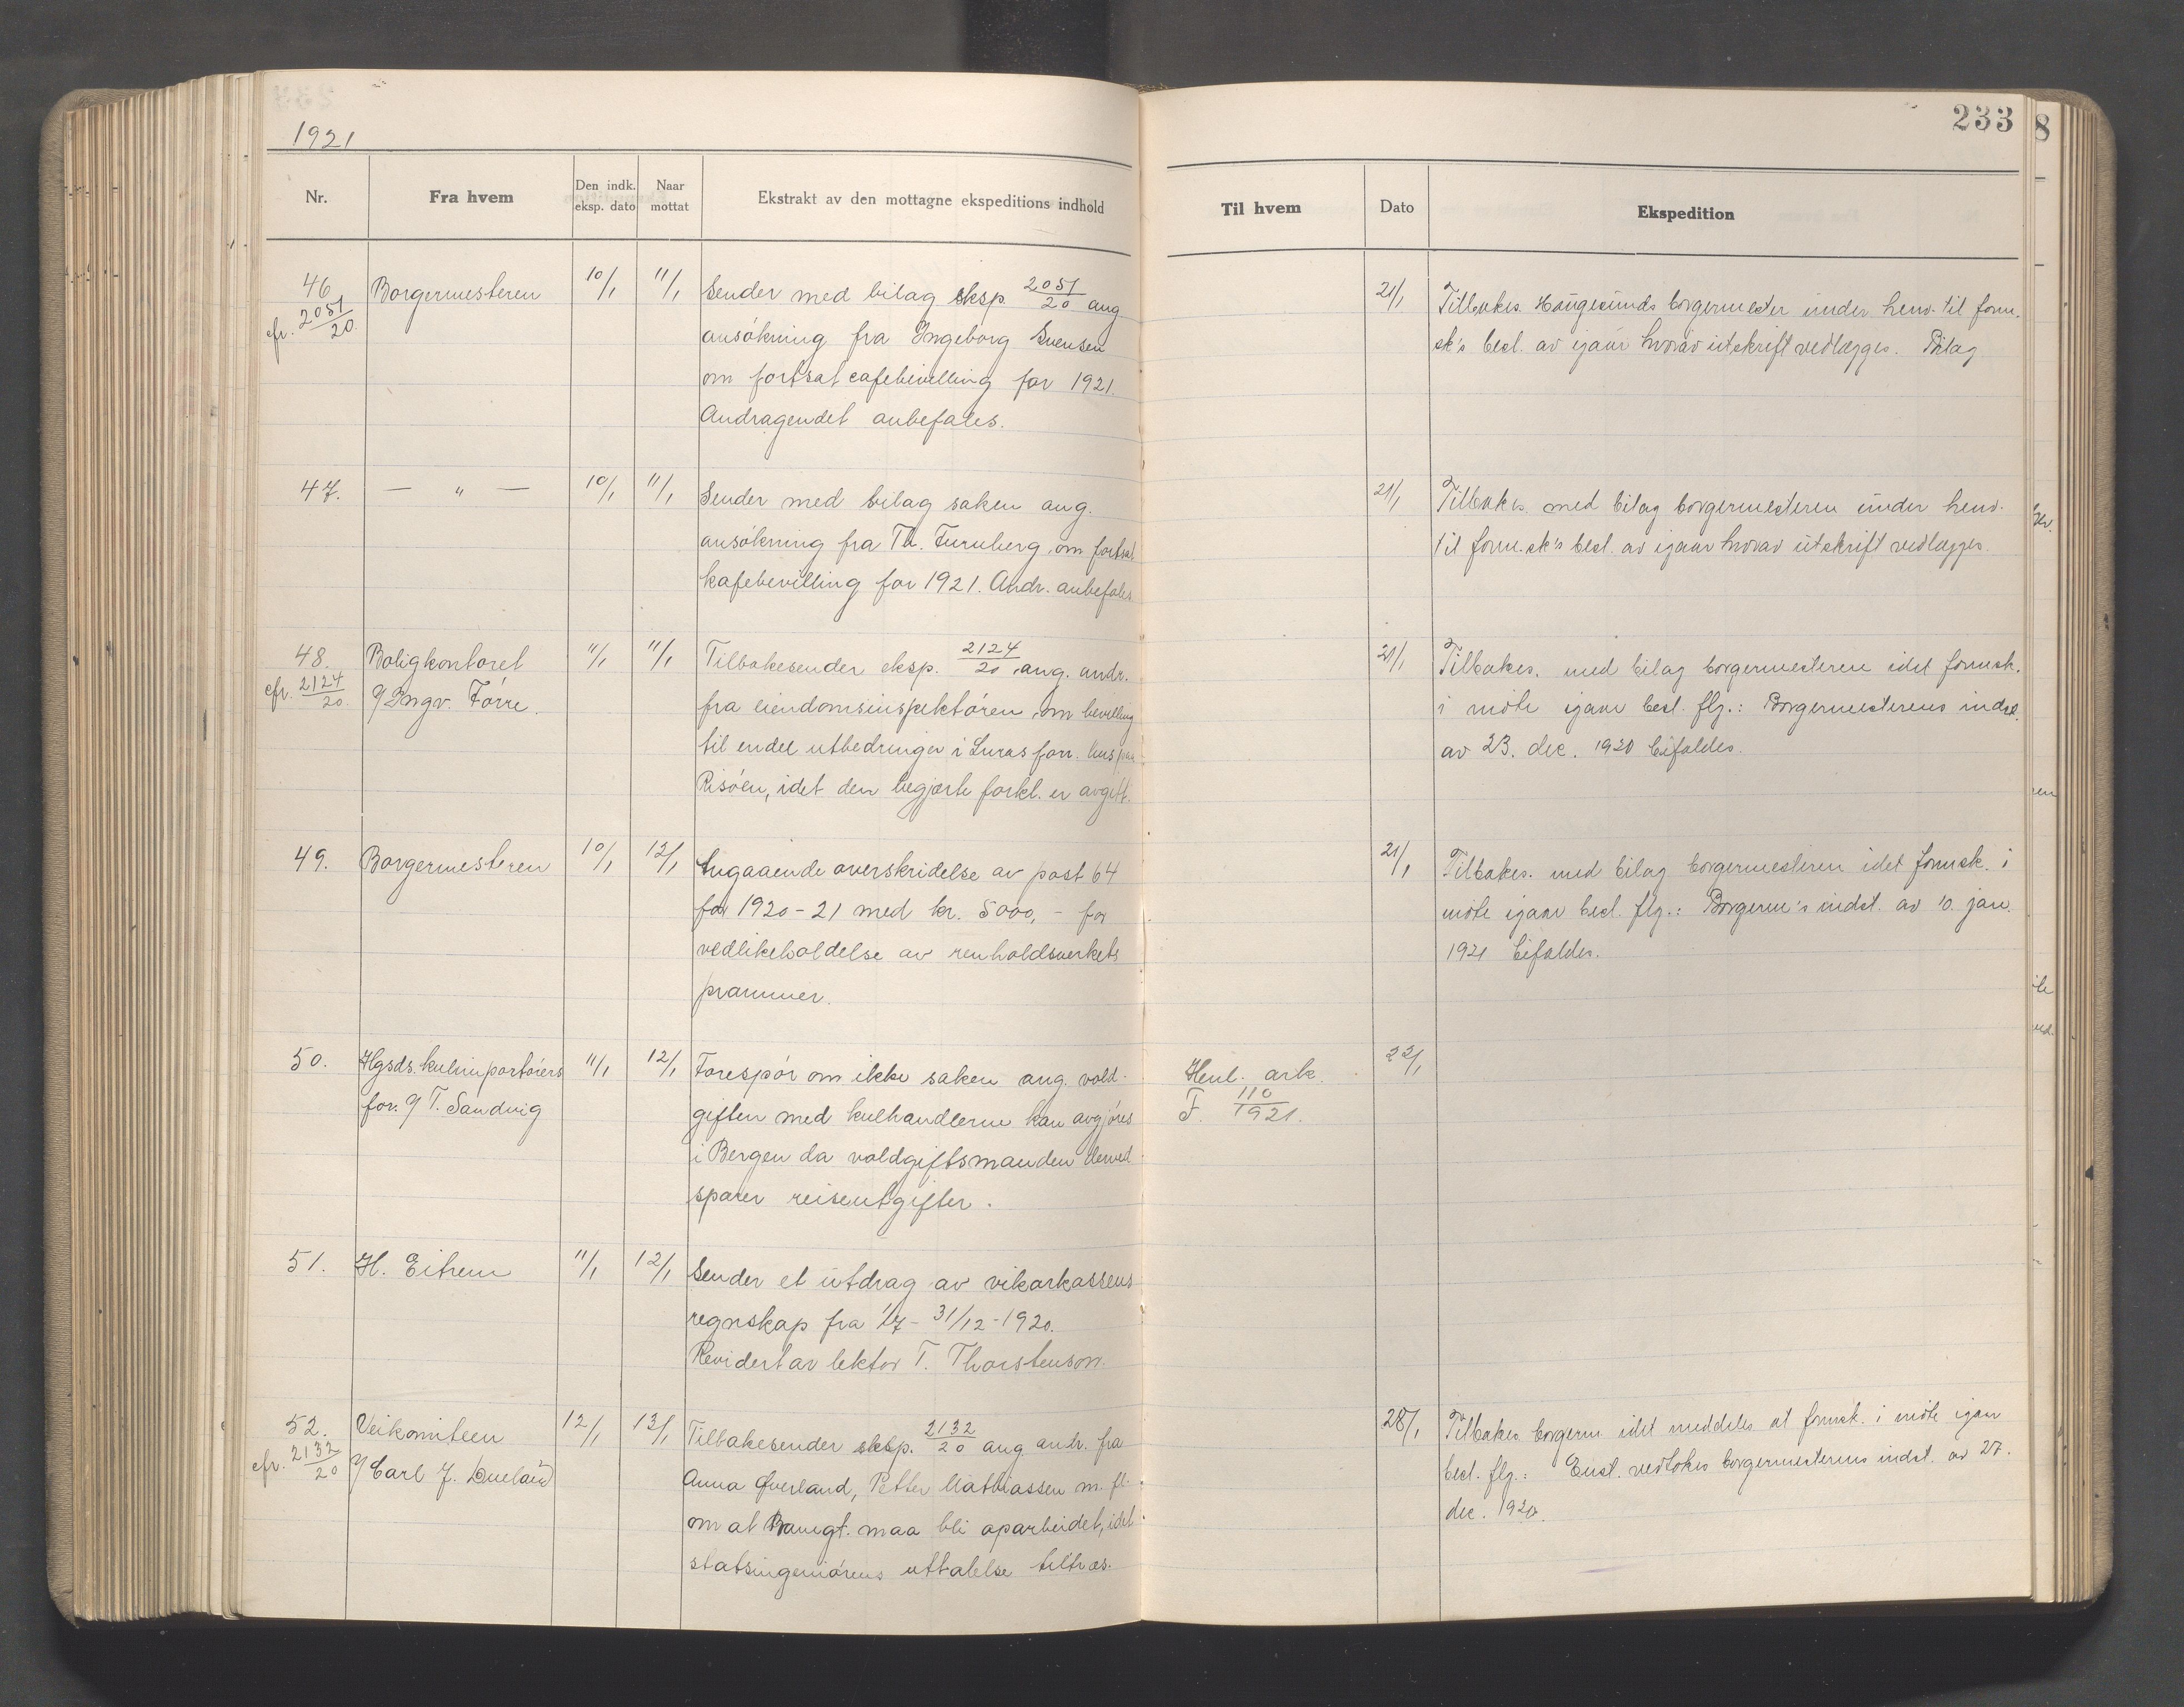 1921
233
Nr.
Fra hvem
Den indk. eksp. dato
Naar mottat
Ekstrakt av den mottagne ekspeditions indhold
Til hvem
Dato
Ekspedition
46
cfr. 2051/20
Borgermesteren
10/1
11/1
Sender med bilag eksp. 2051/20 ang
ansökning fra Ingeborg Svensen
om fortsat cafebevilling for 1921.
Andragendet anbefales.
21/1
Tilbakes. Haugesunds borgermester under henv. til form.
sk's besl. av igaar hvorav utskrift vedlægges. Bilag
47.
— " —
10/1
11/1
Sender med bilag saken ang.
ansökning fra Th. Furuberg om fortsat
kafebevilling for 1921. Andr. anbefales
21/1
Tilbakes. med bilag borgermesteren under henv.
til form.sk's besl. av igaar hvorav utskrift vedlægges.
48.
cfr. 2124/20.
Boligkontoret
v/ Ingv. Förre.
11/1
11/1
Tilbakesender eksp. 2124/20 ang. andr.
fra eiendomsinspektören om bevilling
til endel utbedringer i Luras forr. hus paa
Risöen, idet den begjærte forkl. er avgitt.
21/1
Tilbakes. med bilag borgermesteren idet formsk.
i möte igaar besl. flg.: Borgermesterens indst.
av 23. dec. 1920 bifaldes.
49.
Borgermesteren
10/1
12/1
Angaaende overskridelse av post 64
for 1920-21 med kr. 5000,- for
vedlikeholdelse av renholdsverkets
prammer.
21/1
Tilbakes. med bilag borgermesteren idet formsk. i
möte igaar besl. flg.: Borgerm's indst. av 10. jan.
1921 bifaldes.
50.
Hgsds. kulimportörers
for. v/ T. Sandvig
11/1
12/1
Forespör om ikke saken ang. vold-
giften med kulhandlerne kan avgjöres
i Bergen da voldgiftsmanden derved
sparer reiseutgifter.
Henl. ark.
F. 110/1921.
22/1
51.
H. Eitrem
11/1
12/1
Sender et utdrag av vikarkassens
regnskap fra 1/7 - 31/12 - 1920.
Revidert av lektor T. Thorstenson.
52.
cfr. 2132/20
Veikomiteen
v/ Carl J.
12/1
13/1
Tilbakesender eksp. 2132/20 ang andr. fra
Anna Qverland, Petter Mathiassen m. fl.
om at maa bli oparbeidet, idet
statsingeniörens uttalelse tiltræs.
28/1
Tilbakes. borgerm idet meddeles at formsk. i möte igaar
besl. flg.: Enst. vedtokes borgermesterens indst. av 27.
dec. 1920.